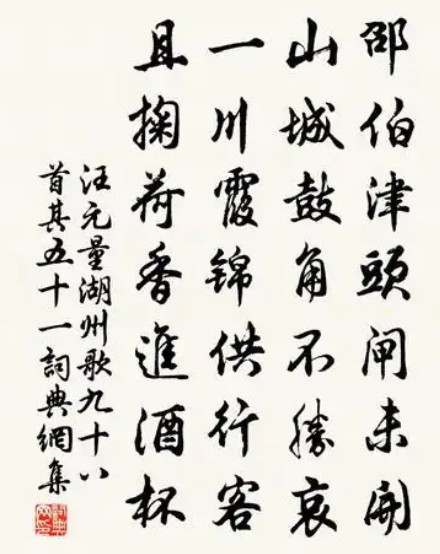 邵伯津頭閘未開
山城鼓角不勝哀
一川霞錦供行客
且掬荷香進酒杯
汪元量湖州歌九十八
首其五十一詞典網集